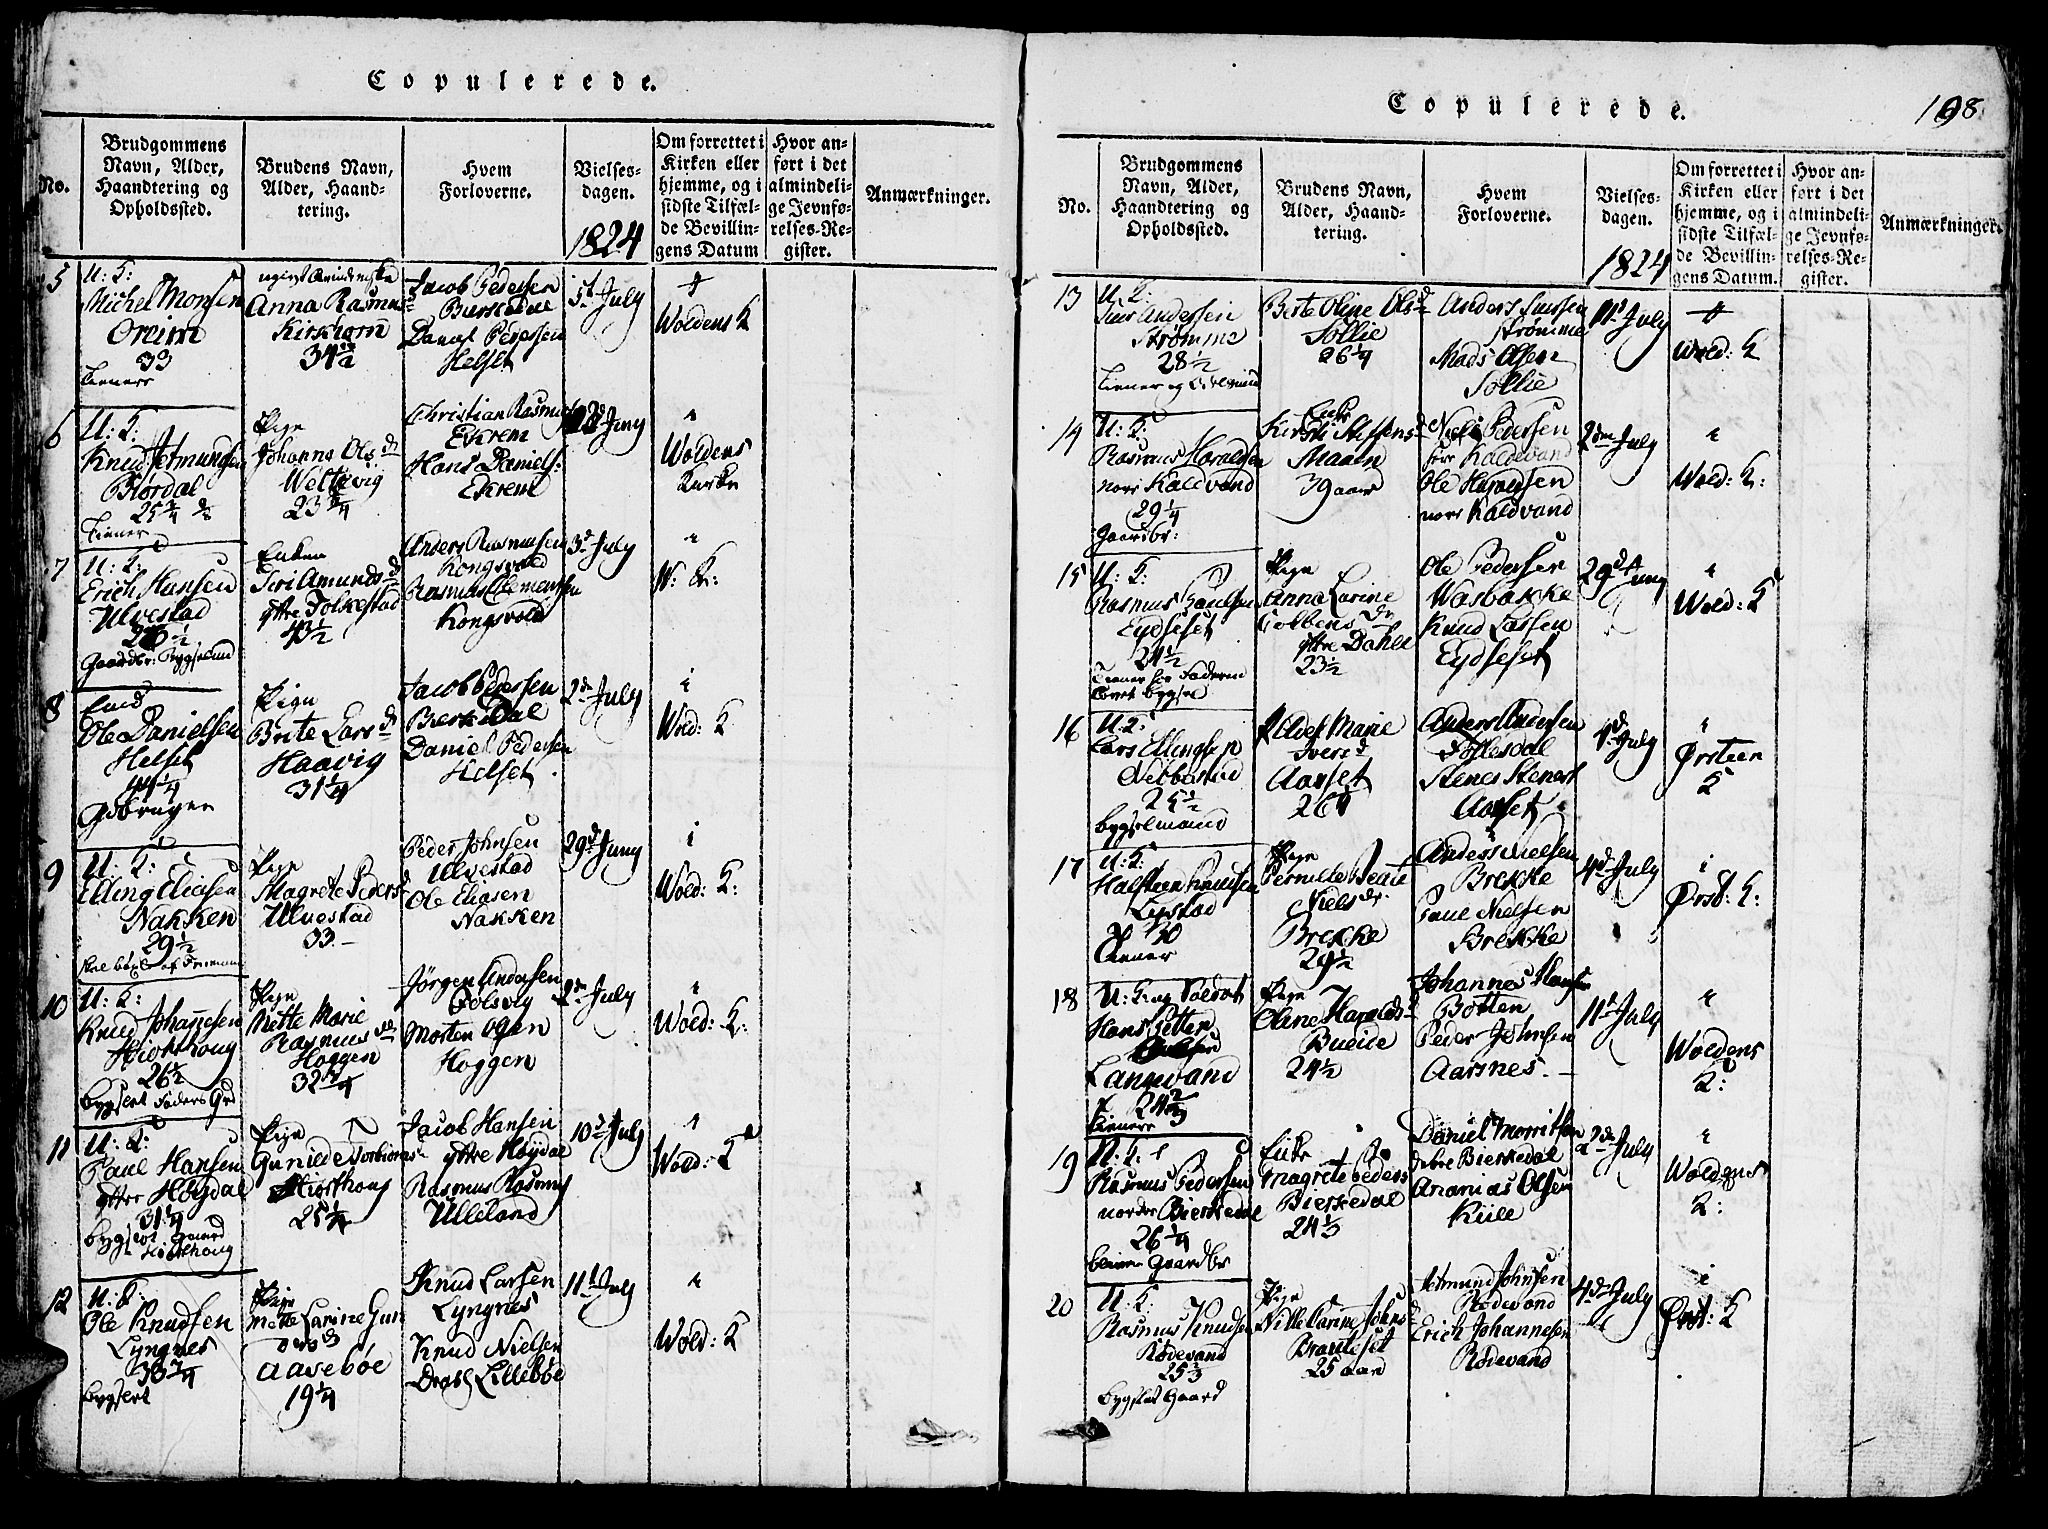 Copulerede.
No.
Brudgommens Navn, Alder, Haandtering og Opholdssted.
Brudens Navn, Alder, Haandtering.
Hvem Forloverne.
Vielsesdagen.
1824
Om forrettet i Kirken eller hjemme, og i sidste Tilfælde Bevillingens Datum
Hvor anført i det almindelige Jevnførelses-Register.
Anmærkninger.
5
Michel Monsen
33
Anna Rasmusd
Kirkhorn
34½
Jacob Pedersen
Bierkedal
Daniel Pedersen
Helset
5t July
Woldens K
6
U: K:
Knud Jetmundsen
Biørdal
25¾
Tiener
Pige
Johanna Olsd
Weltevig
23¾
Christian Rasmus
Ekrem
Hans Daniels:
Ekrem
Juny
Woldens
Kirke
7
U: K:
Erich Hansen
Ulvestad
Enken
Siri Amundsd
yttre Folkestad
43½
Anders Rasmusen
Kongsvold
Rasmus Clemensen
Kongsvold
3d July
W: K:
8
Ole Danielsen
Helset
44¼
Gdbruger
Pige
Brite Larsd
Haavig
31¼
Jacob Pedersen
Bierkedal
Daniel Pedersen
Helset
2d July
Wold: K
9
U: K:
Elling Eliasen
Nakken
29½
Pige
Magrete Pedersd
Ulvestad
33
Peder Johnsen
Ulvestad
Ole Eliasen
Nakken
29d Juny
Wold: K:
10
U: K:
Knud Johannesen
Hiorthoug
26½
bygselt Faders Grd
Pige
Mette Marie
Rasmusd
Hoggen
Jörgen Andersen
Folsvig
Morten
Hoggen
2d July
Wold: K:
11
U: K:
Paul Hansen
yttre Høydal
31¼
bygselt Gaard
Hiorthoug
Pige
Gunilde Torbiørnsd
Hiorthoug
Jacob Hansen
yttre Høydal
Rasmus Rasmus
Ulleland
10d July
Wold: K
12
U: K:
Ole Knudsen
Lyngnes
bygselt
Pige
Mette Larine Gun
Aasebøe
19¼
Knud Larsen
Lyngnes
Knud Nielsen
Lillebøe
11t July
Wold: K
Copulerede.
198
No.
Brudgommens Navn, Alder, Haandtering og Opholdssted.
Brudens Navn, Alder, Haandtering.
Hvem Forloverne.
Vielsesdagen.
1824
Om forrettet i Kirken eller hjemme, og i sidste Tilfælde Bevillingens Datum.
Hvor anført i det almindelige Jevnførelses-Register.
Anmærkninger.
13
U: K:
Andersen
Strømme
28½
Berte Oline Olsd
Sollie
26¼
Anders
Strømme
Mads Olsen
Sollie
11t July
Wold: K
14
U: K:
Rasmus Haraldsen
norr Kaldvand
29¼
Gaardbr:
Enke
Kirsti Steffensd
Maan
39 aar
Niels Pedersen
Kaldvand
Ole Haraldsen
norr Kaldvand
2den July
Wold: K:
15
U: K:
Rasmus Poulsen
Eydseset
24½
Pige
Anna Larine
yttre Dahle
23½
Ole Pedersen
Wasbakke
Knud Lassen
Eydseset
29d Juny
Wold: K
16
U: K:
Lars Ellingsen
bygselmand
Marie
Iversd
Aarset
Anders Andersen
Follesdal
Aarset
4d July
Ørsteen
K
17
U: K:
Halsteen Knudsen
30
Tiener
Pige
Pernille Beate
Nielsdr.
Brekke
24½
Anders Nielsen
Brekke
Paul Nielsen
Brekke
4d July
Ørst: K:
18
U: K: og Soldat
Hans Petter
Langvand
Pige
Oline Haraldsd
24½
Johannes Hansen
Botten
Peder Johnsen
Aarsnes
11t July
Woldens
K:
19
U: K:
Rasmus Pedersen
nordre Bierkedal
26¼
Gaardbr
Enke
Magrete Peders
Bierkedal
24⅓
Daniel Morritsen
Bierkedal
Ananias Olsen
Kiile
2d July
Woldens
K:
20
U: K:
Rasmus Knudsen
Rødevand
25⅓
bygslet Gaard
Pige
Nille Karine Johnsd
25 aar
Jetmund Johnsen
Rødevand
Erich Johannesen
Rødevand
4d July
Ørst: K